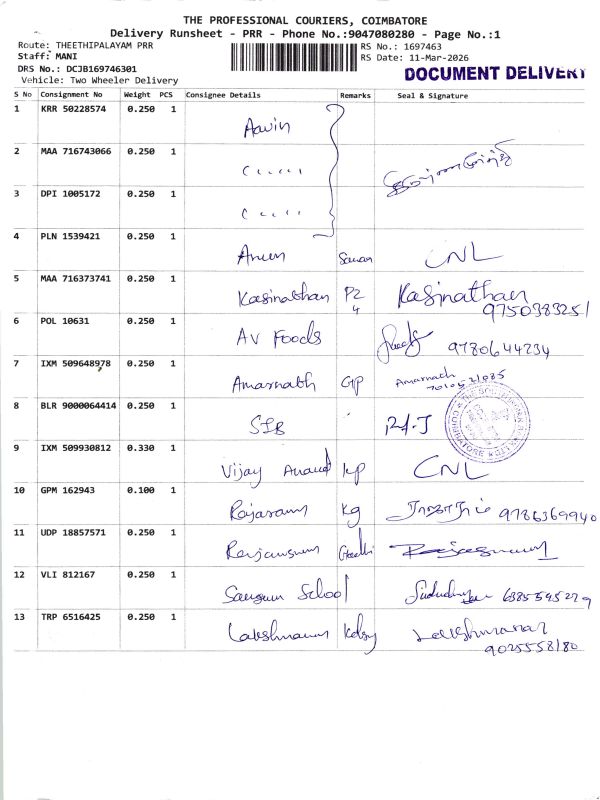 THE PROFESSIONAL COURIERS, COIMBATORE
Delivery Runsheet - PRR - Phone No.:9047080280 - Page No.:1
Route: THEETHIPALAYAM PRR
RS No.: 1697463
Staff: MANI
RS Date: 11-Mar-2026
DRS No.: DCJB169746301
DOCUMENT DELIVERY
Vehicle: Two Wheeler Delivery
S No Consignment No Weight PCS Consignee Details Remarks Seal & Signature
1 KRR 50228574 0.250 1
2 MAA 716743066 0.250 1
3 DPI 1005172 0.250 1
4 PLN 1539421 0.250 1 CNL
5 MAA 716373741 0.250 1 Kasinathan P2 Kasinathan
4 9750383251
6 POL 10631 0.250 1 AV Foods 9780644234
7 IXM 509648978 0.250 1 Amarnath GP Amarnath
7010521085
8 BLR 9000064414 0.250 1 SIB
COIMBATORE
9 IXM 509930812 0.330 1 Vijay Anand kp CNL
10 GPM 162943 0.100 1 Rajaram Kg 9786369940
11 UDP 18857571 0.250 1
12 VLI 812167 0.250 1 School 6385595229
13 TRP 6516425 0.250 1 Lakshmanan Lakshmanan
9025558180